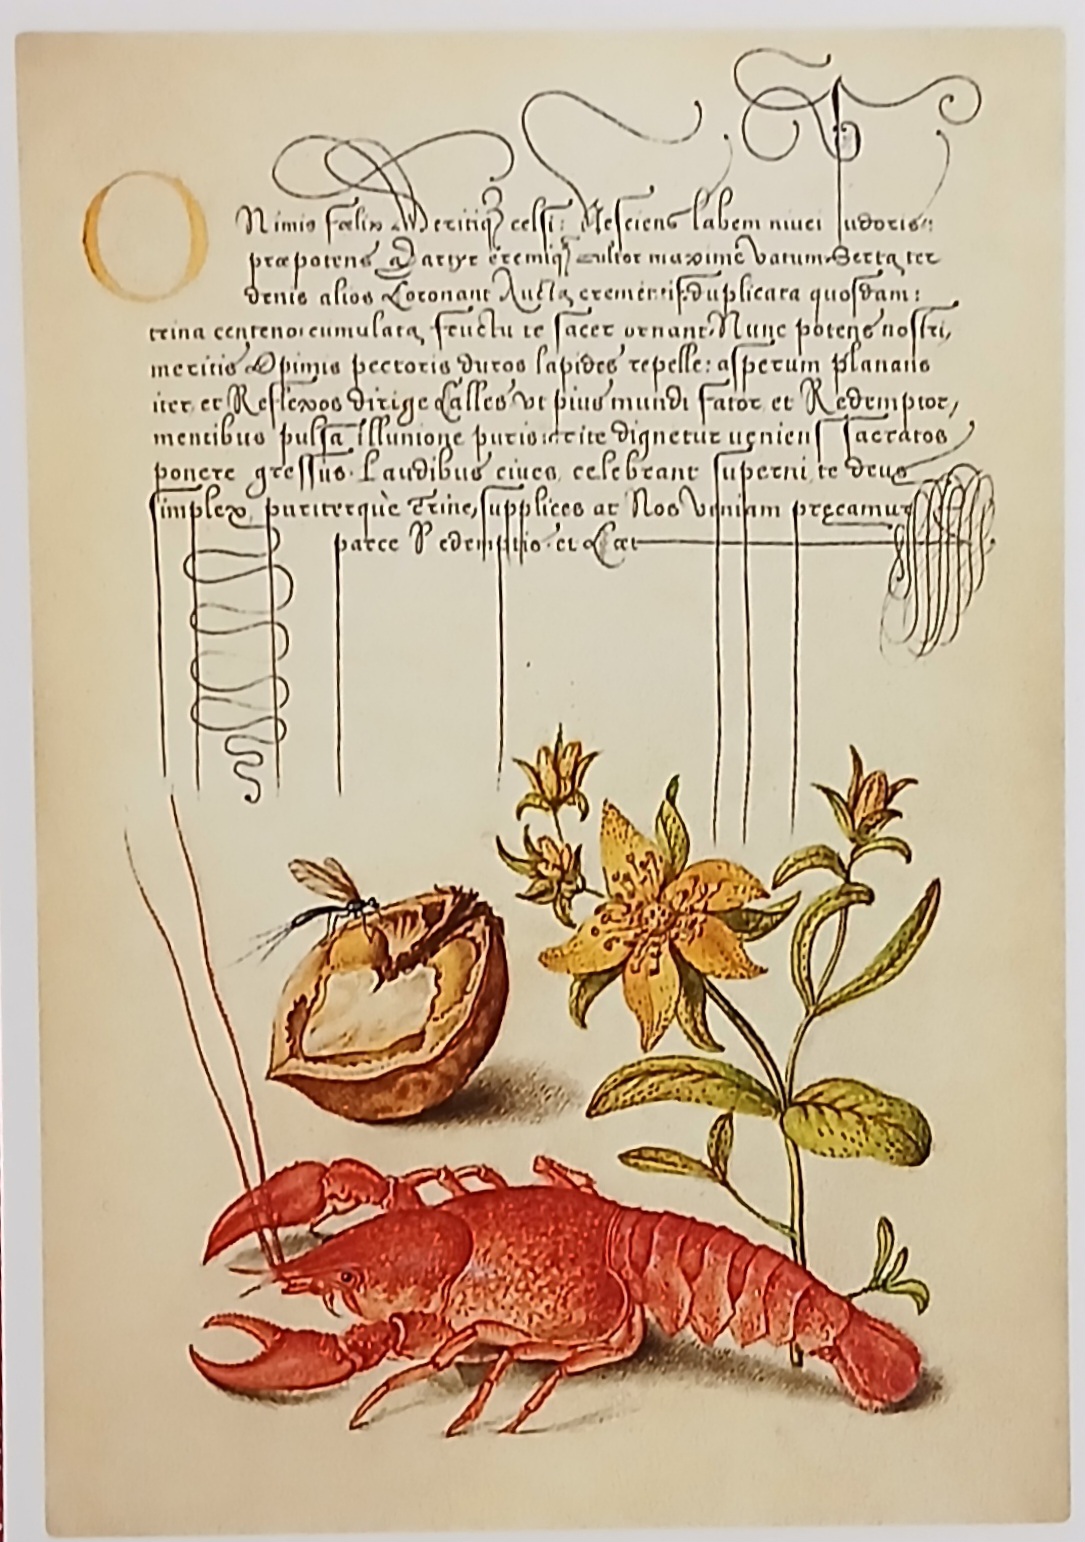 O Nimis fœlix Meritiq3 celsi: Nesciens labem niuei pudoris:
præpotens Martyr eremiq3 cultor maxime Vatum. Serta ter
denis alios Coronant Aucta crementis, duplicata quosdam:
trina centeno cumulata, fructu te sacer ornant. Nunc potens nostri,
meritis Opimis pectoris duros lapides repelle: asperum planans
iter, et Reflexos dirige Calles Vt pius mundi Sator, et Redemptor,
mentibus pulsa Illunione puris: rite dignetur ueniens sacratos
ponere gressus. Laudibus ciues, celebrant superni, te deus
simplex, pariterque Trine, supplices ac Nos Veniam precamur
parce Redemptis. et Cæt